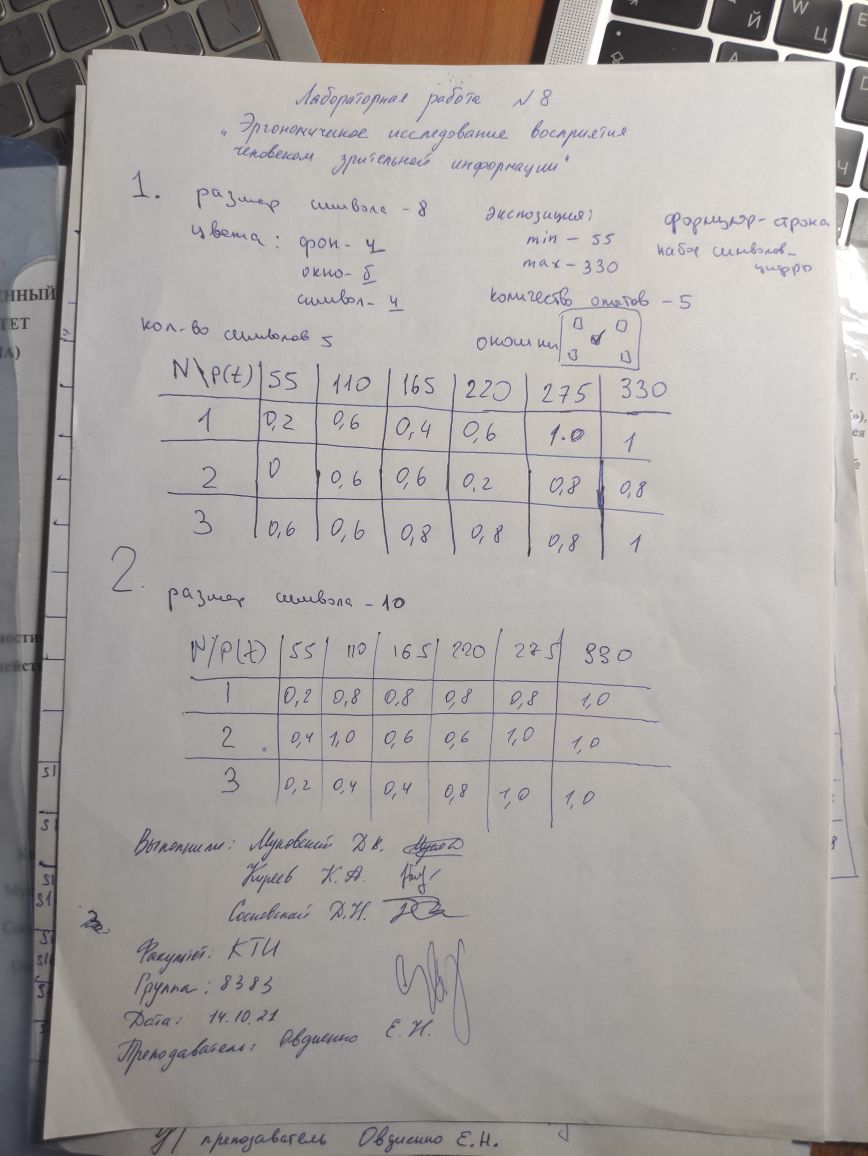 Лабораторная работа N 8
"Эргономическое исследование восприятия
человеком зрительной информации"
1. размер символа - 8
цвета: фон - ч
окно - б
символ - ч
экспозиция:
min - 55
max - 330
формуляр - строка
набор символов -
цифры
количество опытов - 5
кол-во символов 5
окошки
N\P(t) 55 110 165 220 275 330
1 0,2 0,6 0,4 0,6 1.0 1
2 0 0,6 0,6 0,2 0,8 0,8
3 0,6 0,6 0,8 0,8 0,8 1
2.
размер символа - 10
N/P(t) 55 110 165 220 275 330
1 0,2 0,8 0,8 0,8 0,8 1,0
2 0,4 1,0 0,6 0,6 1,0 1,0
3 0,2 0,4 0,4 0,8 1,0 1,0
Выполнили: Муковский Д.К.
Киреев К.А.
Сосновский Д.Н.
Факультет: КТИ
Группа: 8383
Дата: 14.10.21
Преподаватель: Овдиенко Е.Н.
преподаватель Овдиенко Е.Н.